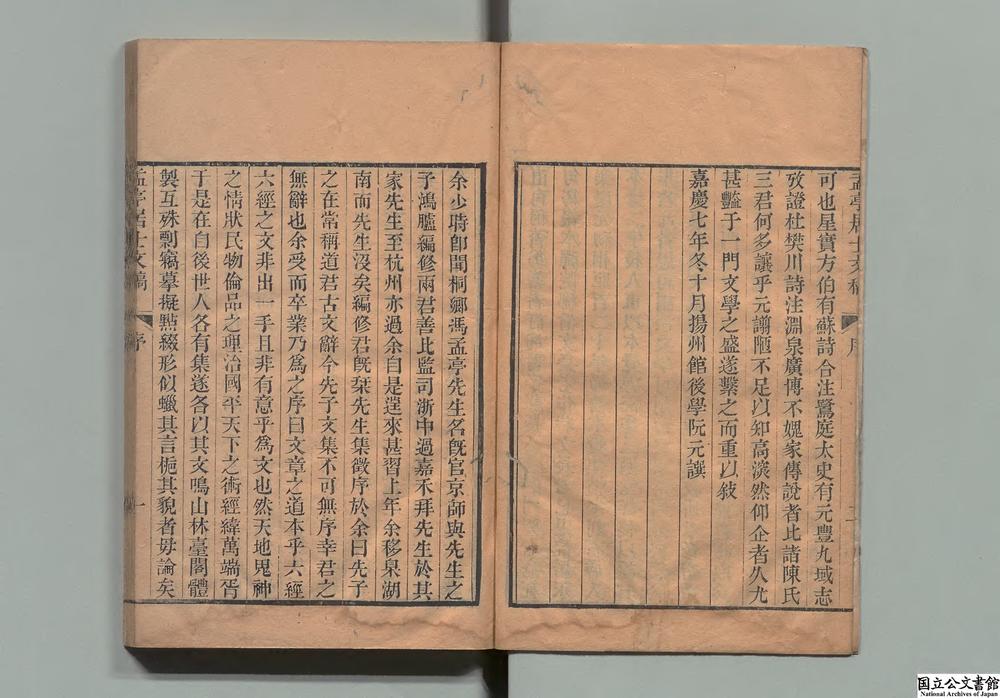 孟亭居士文稿 序 二
可也星實方伯有蘇詩合注鷺庭太史有元豐九域志
攷證杜樊川詩注淵泉廣博不媿家傳說者比諸陳氏
三君何多讓乎元謭陋不足以知高深然仰企者久尤
甚豔于一門文學之盛遂繫之而重以敍
嘉慶七年冬十月揚州館後學阮元譔
余少時卽聞桐鄉馮孟亭先生名旣官京師與先生之
子鴻臚編修兩君善比監司浙中過嘉禾拜先生於其
家先生至杭州亦過余自是遑來甚習上年余移臬湖
南而先生沒矣編修君旣栞先生集徵序於余曰先子
之在常稱道君古文辭今先子文集不可無序幸君之
無辭也余受而卒業乃爲之序曰文章之道本乎六經
六經之文非出一手且非有意乎爲文也然天地鬼神
之情狀民物倫品之理治國平天下之術經緯萬端胥
于是在自後世人各有集遂各以其文鳴山林臺閣體
製互殊剽竊摹擬㸃綴形似蠟其言梔其貌者毋論矣
孟亭居士文稿 序 一
国立公文書館
National Archives of Japan